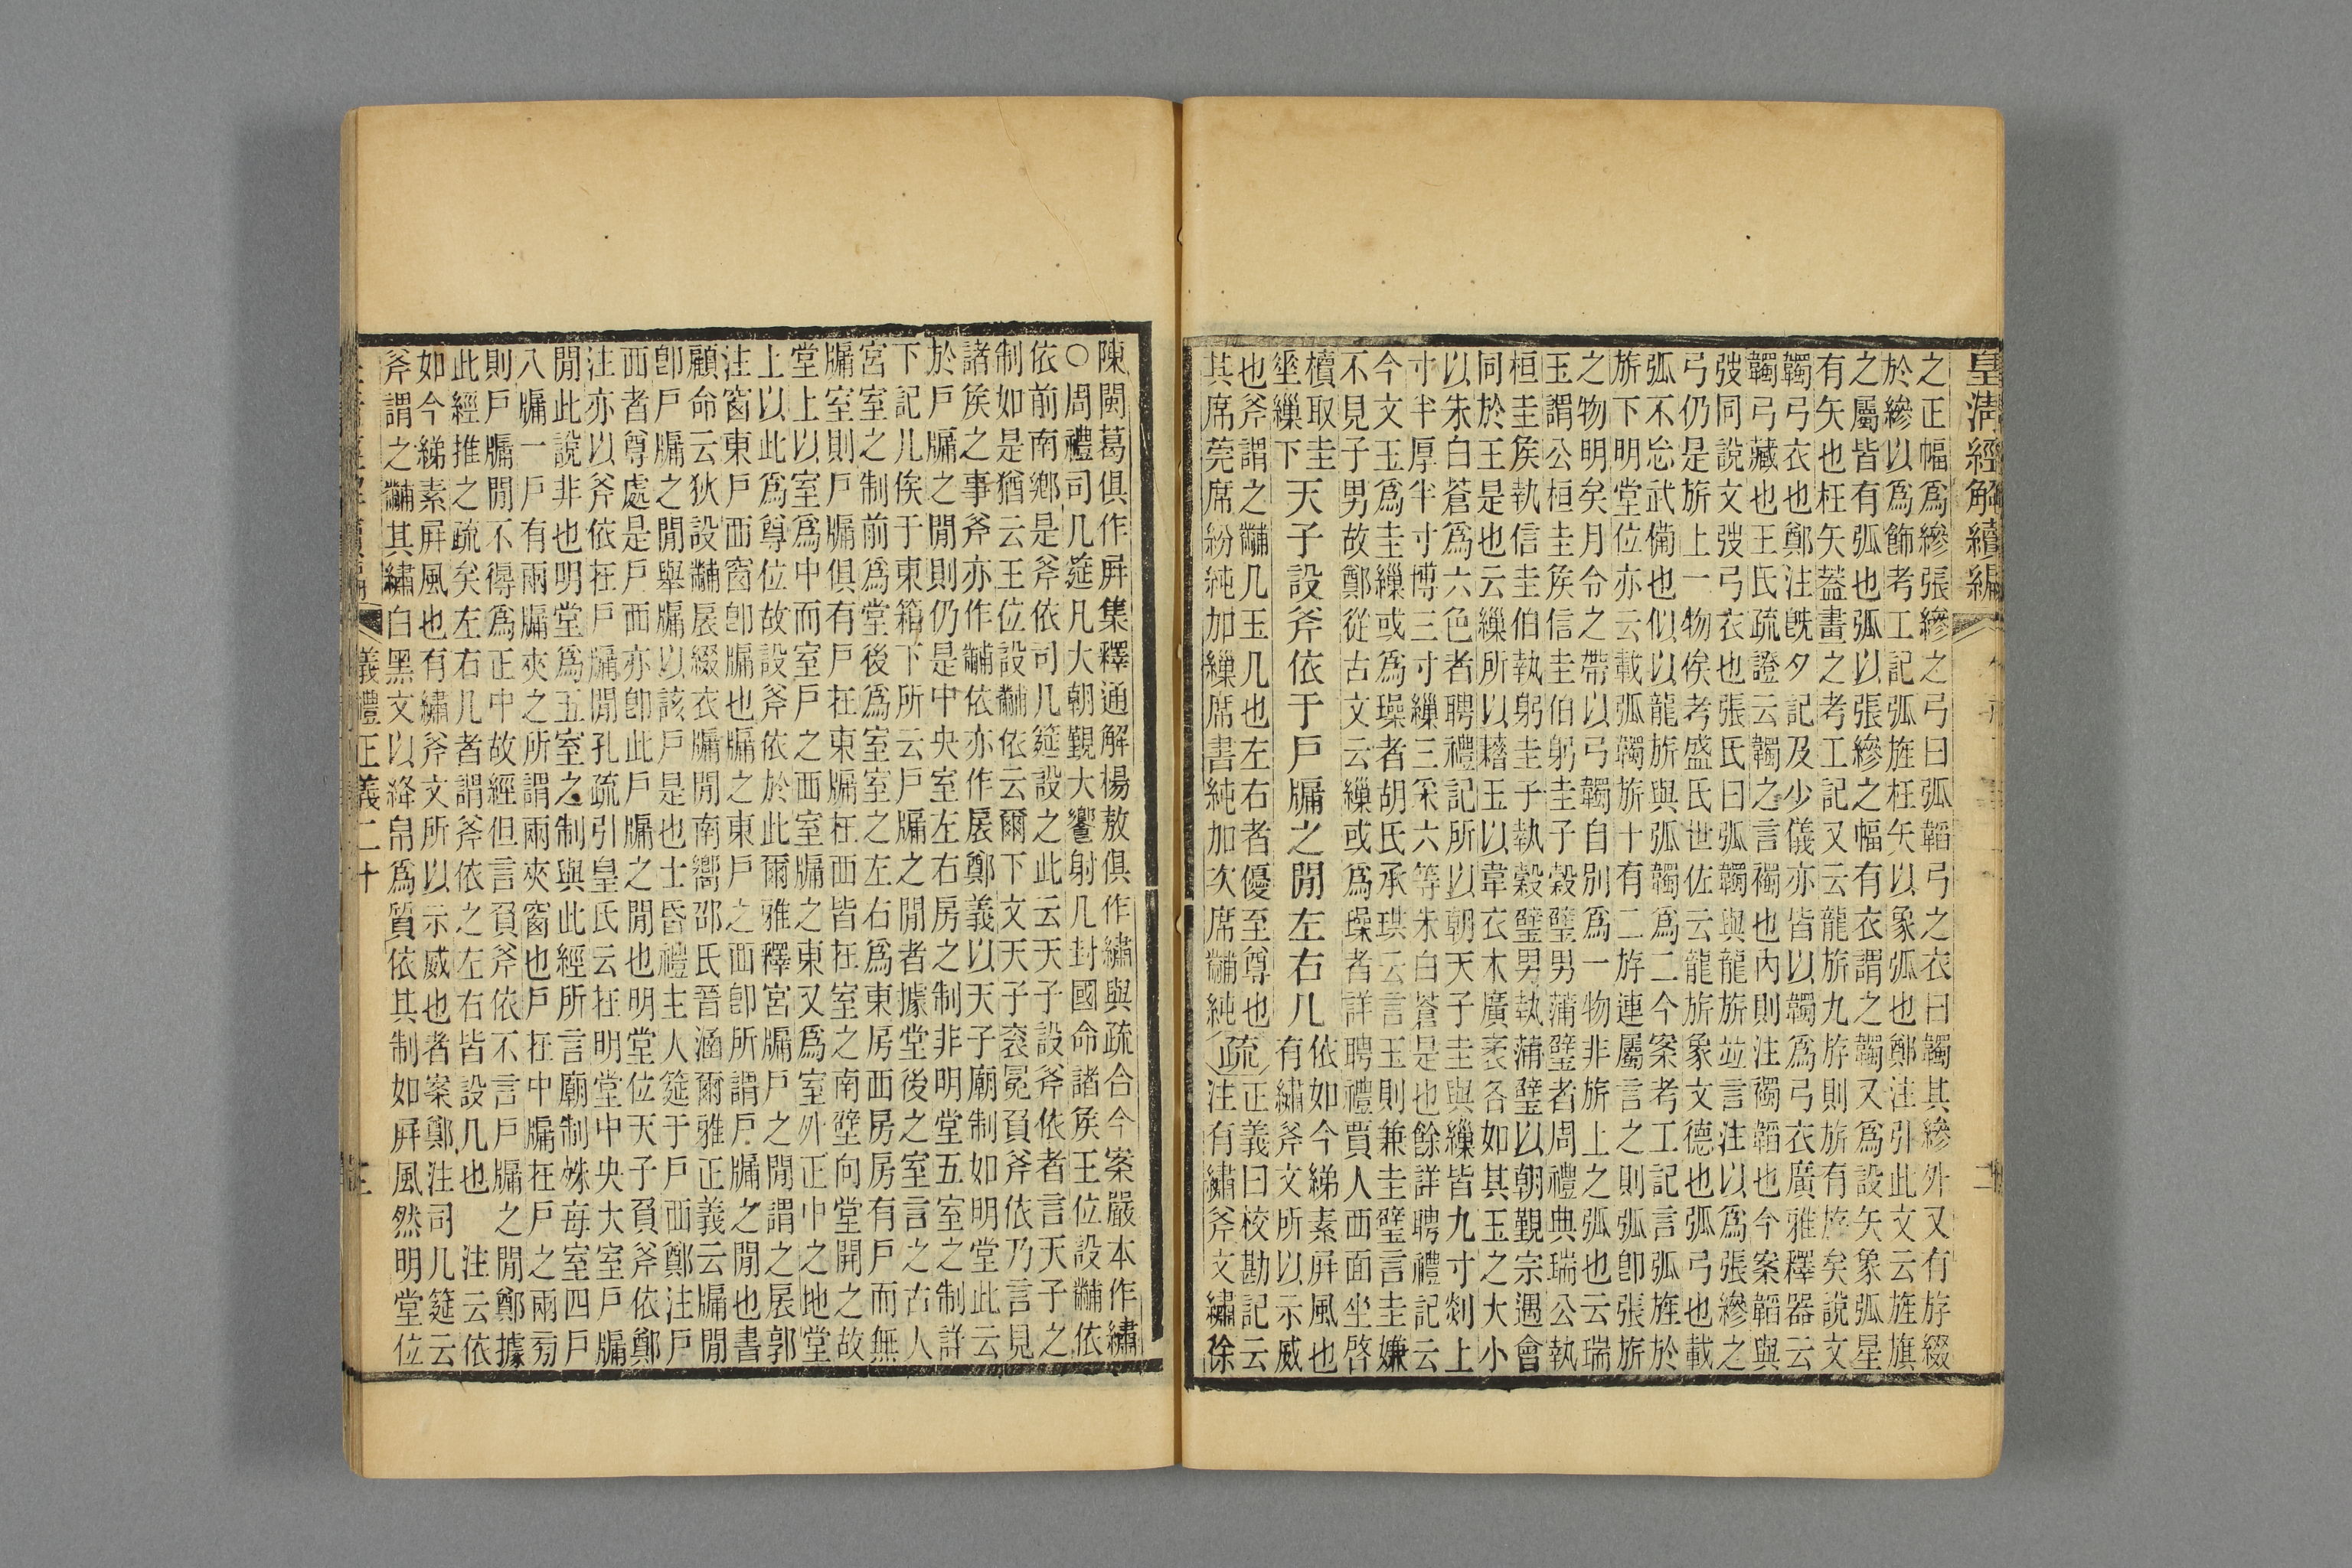 皇清經解續編
之正幅爲縿張縿之弓曰弧韜弓之衣曰韣其縿外又有斿綴
於縿以爲飾考工記弧旌枉矢以象弧也鄭注引此文云旌旗
之屬皆有弧也弧以張縿之幅有衣謂之韣又爲設矢象弧星
有矢也枉矢葢畫之考工記又云龍旂九斿則旂有斿矣說文
韣弓衣也鄭注旣夕記及少儀亦皆以韣爲弓衣廣雅釋器云
韣弓藏也王氏疏證云韣之言襡也內則注襡韜也今案韜與
弢同說文弢弓衣也張氏曰弧韣與龍旂竝言注以爲張縿之
弓仍是旂上一物俟考盛氏世佐云龍旂象文德也弧弓也載
弧不忘武備也似以龍旂與弧韣爲二今案考工記言弧旌於
旂下明堂位亦云載弧韣旂十有二斿連屬言之則弧卽張旂
之物明矣月令之帶以弓韣自別爲一物非旂上之弧也云瑞
玉謂公桓圭矦信圭伯躬圭子穀璧男蒲璧者周禮典瑞公執
桓圭矦執信圭伯執躬圭子執穀璧男執蒲璧以朝覲宗遇會
同於王是也云繅所以藉玉以韋衣木廣袤各如其玉之大小
以朱白蒼爲六色者聘禮記所以朝天子圭與繅皆九寸剡上
寸半厚半寸博三寸繅三采六等朱白蒼是也餘詳聘禮記云
今文玉爲圭繅或爲璪者胡氏承珙云言玉則兼圭璧言圭嫌
不見子男故鄭從古文云繅或爲璪者詳聘禮賈人西面坐啓
櫝取圭
坐繅下
天子設斧依于戶牖之閒左右几
依如今綈素屏風也
有繡斧文所以示威
也斧謂之黼几玉几也左右者優至尊也
其席莞席紛純加繅席畫純加次席黼純
疏
正義曰校勘記云
注有繡斧文繡徐
陳閩葛俱作屏集釋通解楊敖俱作繡與疏合今案嚴本作繡
○周禮司几筵凡大朝覲大饗射凡封國命諸矦王位設黼依
依前南鄉是斧依司几筵設之此云天子設斧依者言天子之
制如是猶云王位設黼依云爾下文天子衮冕負斧依乃言見
諸矦之事斧亦作黼依亦作扆鄭義以天子廟制如明堂此云
於戶牖之閒則仍是中央室左右房之制非明堂五室之制詳
下記几俟于東箱下所云戶牖之閒者據堂後之室言之古人
宮室之制前爲堂後爲室室之左右爲東房西房房有戶而無
牖室則戶牖俱有戶在東牖在西皆在室之南壁向堂開之故
堂上以室爲中而室戶之西室牖之東又爲室外正中之地堂
上以此爲尊位故設斧依於此爾雅釋宮牖戶之閒謂之扆郭
注窗東戶西窗卽牖也牖之東戶之西卽所謂戶牖之閒也書
顧命云狄設黼扆綴衣牖閒南嚮邵氏晉涵爾雅正義云牖閒
卽戶牖之閒舉牖以該戶是也士昏禮主人筵于戶西鄭注戶
西者尊處是戶西亦卽此戶牖之閒也明堂位天子負斧依鄭
注亦以斧依在戶牖閒孔疏引皇氏云在明堂中央大室戶牖
閒此說非也明堂爲五室之制與此經所言廟制殊每室四戶
八牖一戶有兩牖夾之所謂兩夾窗也戶在中牖在戶之兩旁
則戶牖閒不得爲正中故經但言負斧依不言戶牖之閒鄭據
此經推之疏矣左右几者謂斧依之左右皆設几也 注云依
如今綈素屏風也有繡斧文所以示威也者案鄭注司几筵云
斧謂之黼其繡白黑文以絳帛爲質依其制如屏風然明堂位
儀禮正義二十